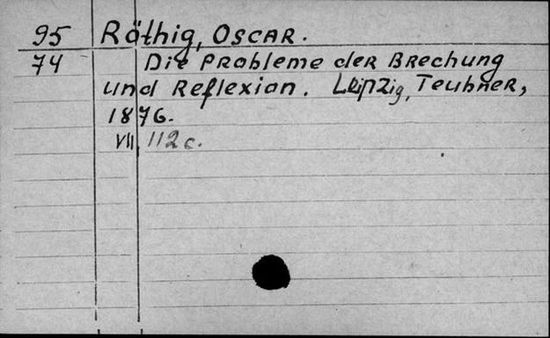 95 Röthig, Oscar.
74 Die Probleme der Brechung
und Reflexion. Leipzig, Teubner,
1876.
VII, 112 c.